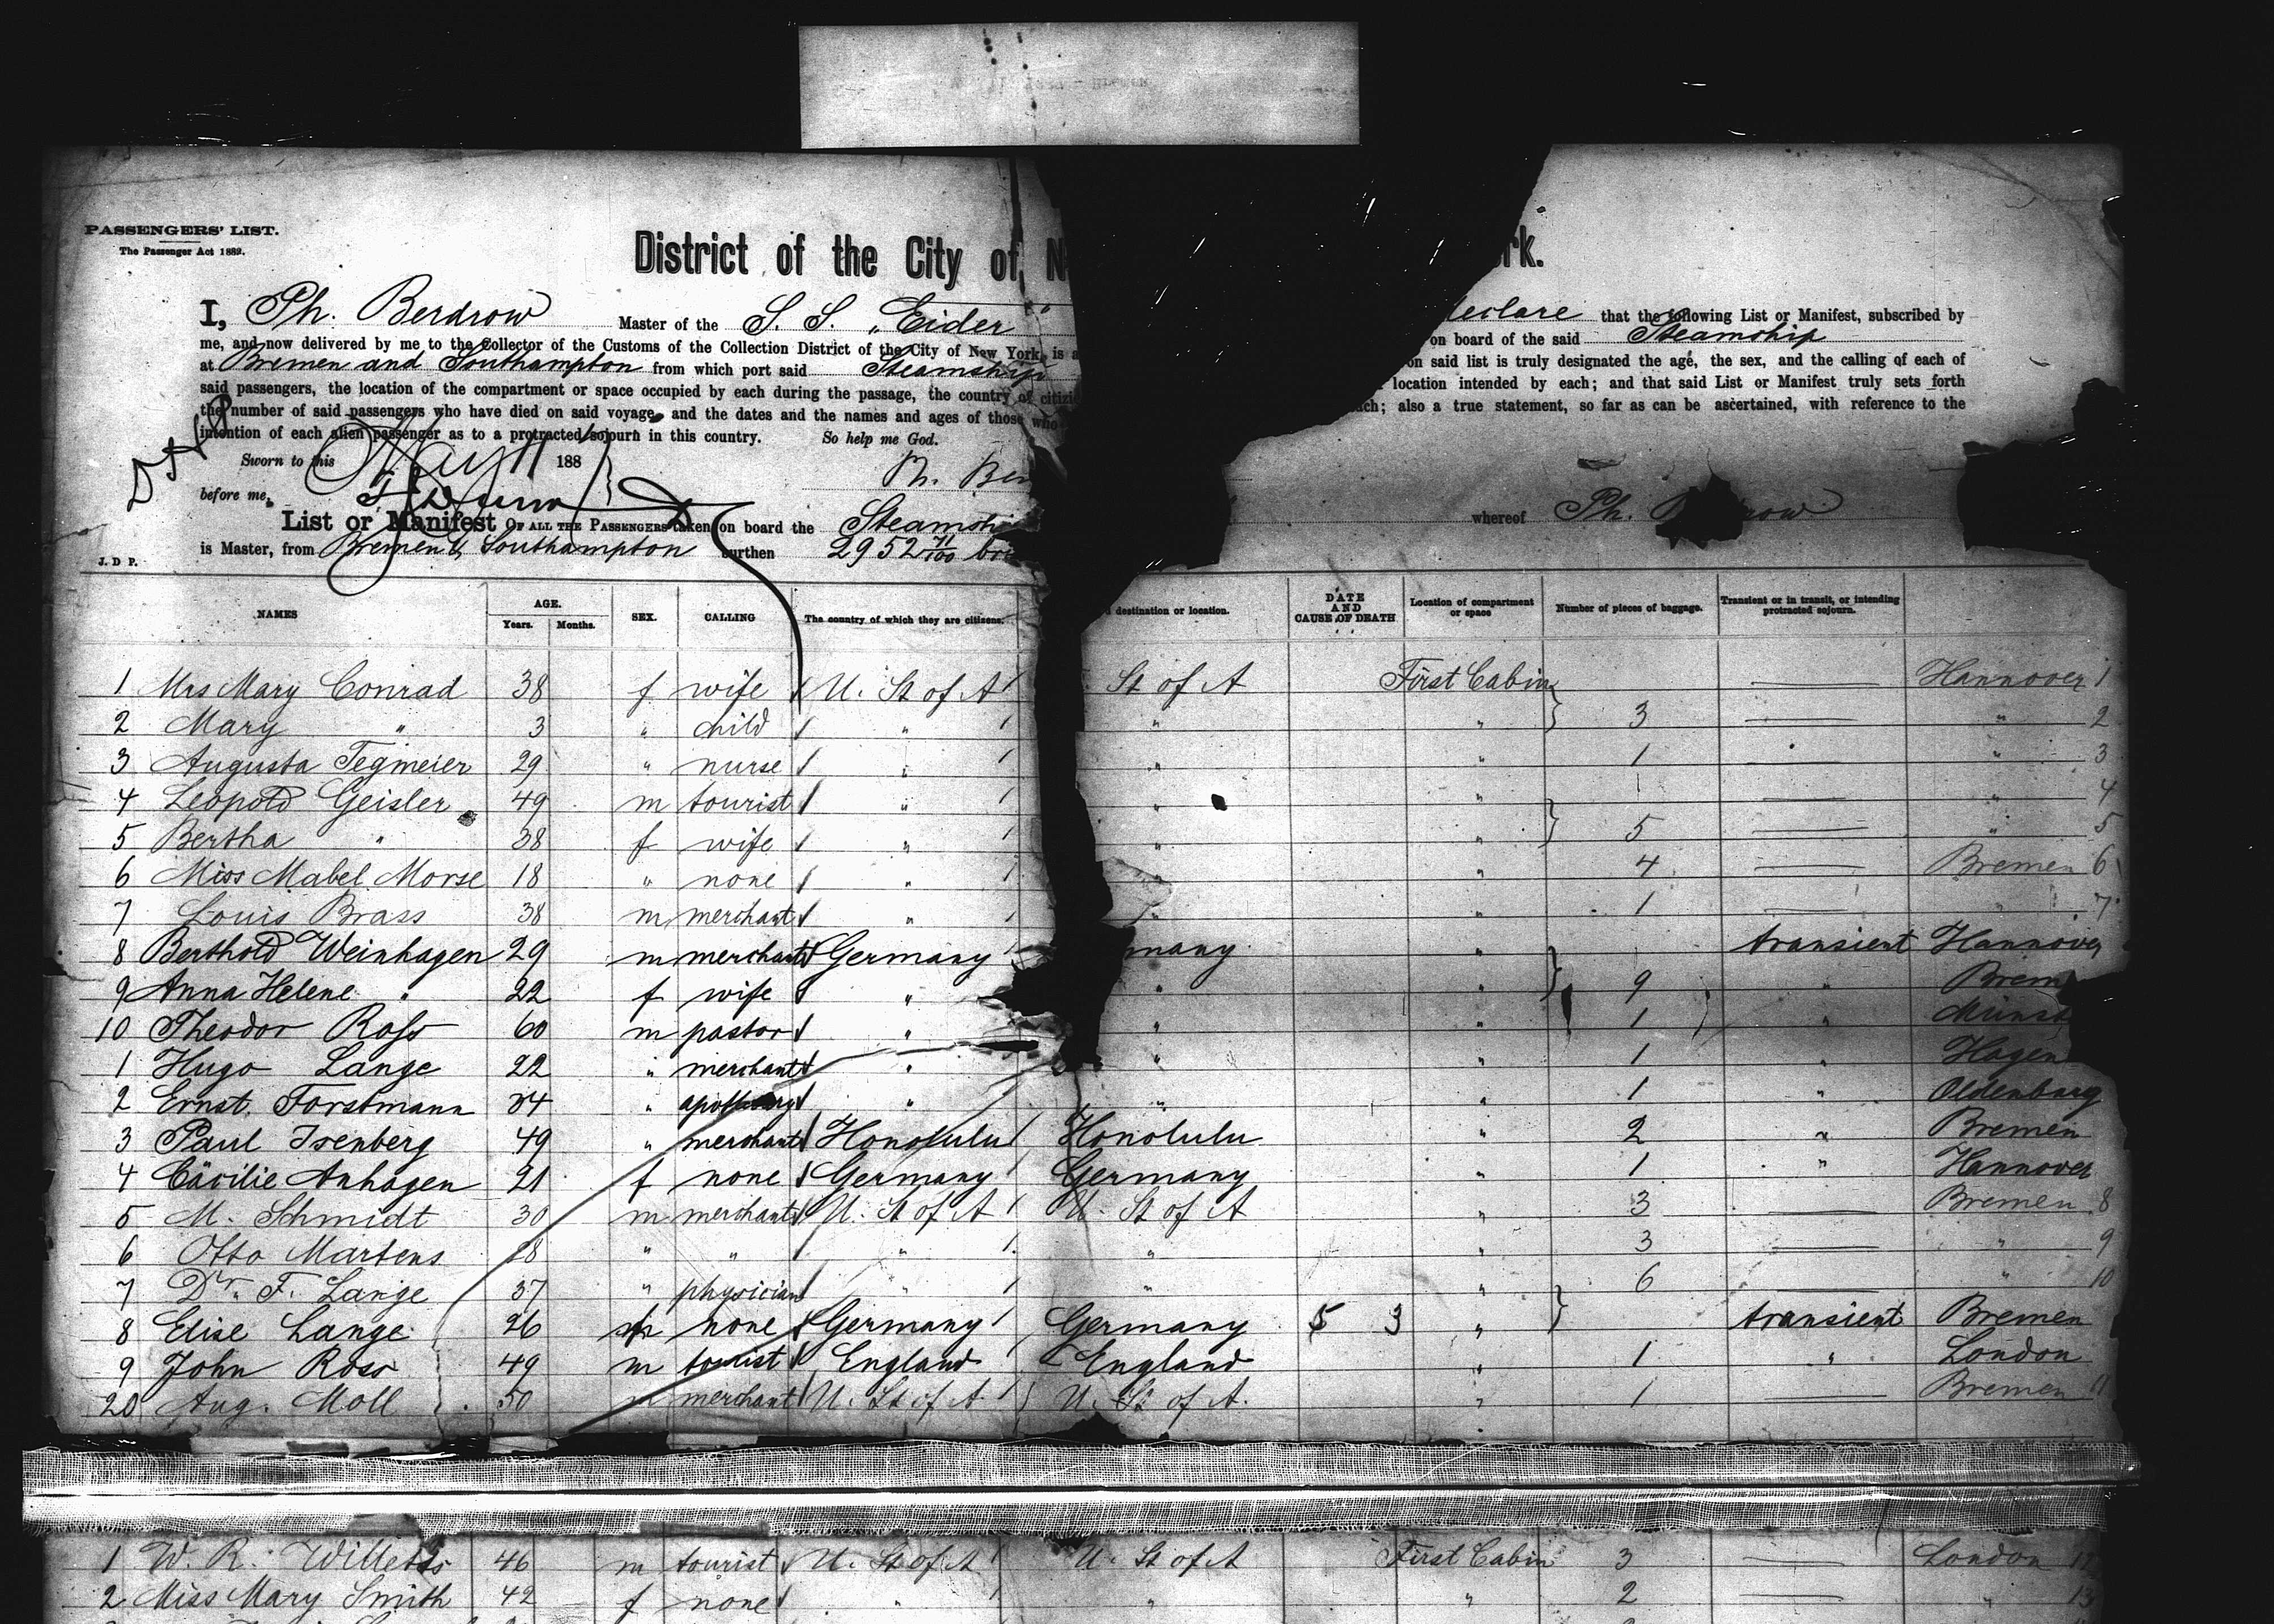 PASSENGERS' LIST.
The Passenger Act 1882.
District of the City of N rk.
I, Ph. Berdrow Master of the S. S. „Eider" declare that the following List or Manifest, subscribed by
me, and now delivered by me to the Collector of the Customs of the Collection District of the City of New York, is a on board of the said Steamship
at Bremen and Southampton from which port said Steamship on said list is truly designated the age, the sex, and the calling of each of
said passengers, the location of the compartment or space occupied by each during the passage, the country of citize location intended by each; and that said List or Manifest truly sets forth
the number of said passengers who have died on said voyage, and the dates and the names and ages of those who ach; also a true statement, so far as can be ascertained, with reference to the
intention of each alien passenger as to a protracted sojourn in this country. So help me God.
Sworn to this May 11 188
Ph. Ber
before me,
List or Manifest OF ALL THE PASSENGERS taken on board the Steamshi whereof Ph. B row
is Master, from Bremen & Southampton burthen 2952 71/100
J. D P.
NAMES AGE. Years. Months. SEX. CALLING The country of which they are citizens. d destination or location. DATE AND CAUSE OF DEATH Location of compartment or space Number of pieces of baggage. Transient or in transit, or intending protracted sojourn.
1 Mrs Mary Conrad 38 f wife U. St of A St of A First Cabin Hannover 1
2 Mary " 3 " child " " " 3 " 2
3 Augusta Tegmeier 29 " nurse " " " 1 " 3
4 Leopold Geisler 49 m tourist " " " " 4
5 Bertha " 38 f wife " " " 5 " 5
6 Miss Mabel Morse 18 " none " " 4 Bremen 6
7 Louis Brass 38 m merchant " " " 1 " 7
8 Berthold Weinhagen 29 m merchant Germany many " transient Hannover
9 Anna Helene " 22 f wife " " " 9 " Brem
10 Theodor Ross 60 m pastor " " " 1 " Münst
1 Hugo Lange 22 " merchant " " " 1 " Hagen
2 Ernst Forstmann 34 " apothecary " " " 1 " Oldenburg
3 Paul Isenberg 49 " merchant Honolulu Honolulu " 2 " Bremen
4 Cäcilie Anhagen 21 f none Germany Germany " 1 " Hannover
5 M. Schmidt 30 m merchant U. St of A U. St of A " 3 Bremen 8
6 Otto Martens 28 " " " " " 3 " 9
7 Dr. F. Lange 37 " physician " " " 6 " 10
8 Elise Lange 26 f none Germany Germany 5 3 " transient Bremen
9 John Ross 49 m tourist England England " 1 " London
20 Aug. Moll 50 m merchant U. St of A U. St of A. " 1 Bremen 11
1 W. R. Willetts 46 m tourist U. St of A U. St of A First Cabin 3 London 12
2 Miss Mary Smith 42 f none " " " 2 " 13